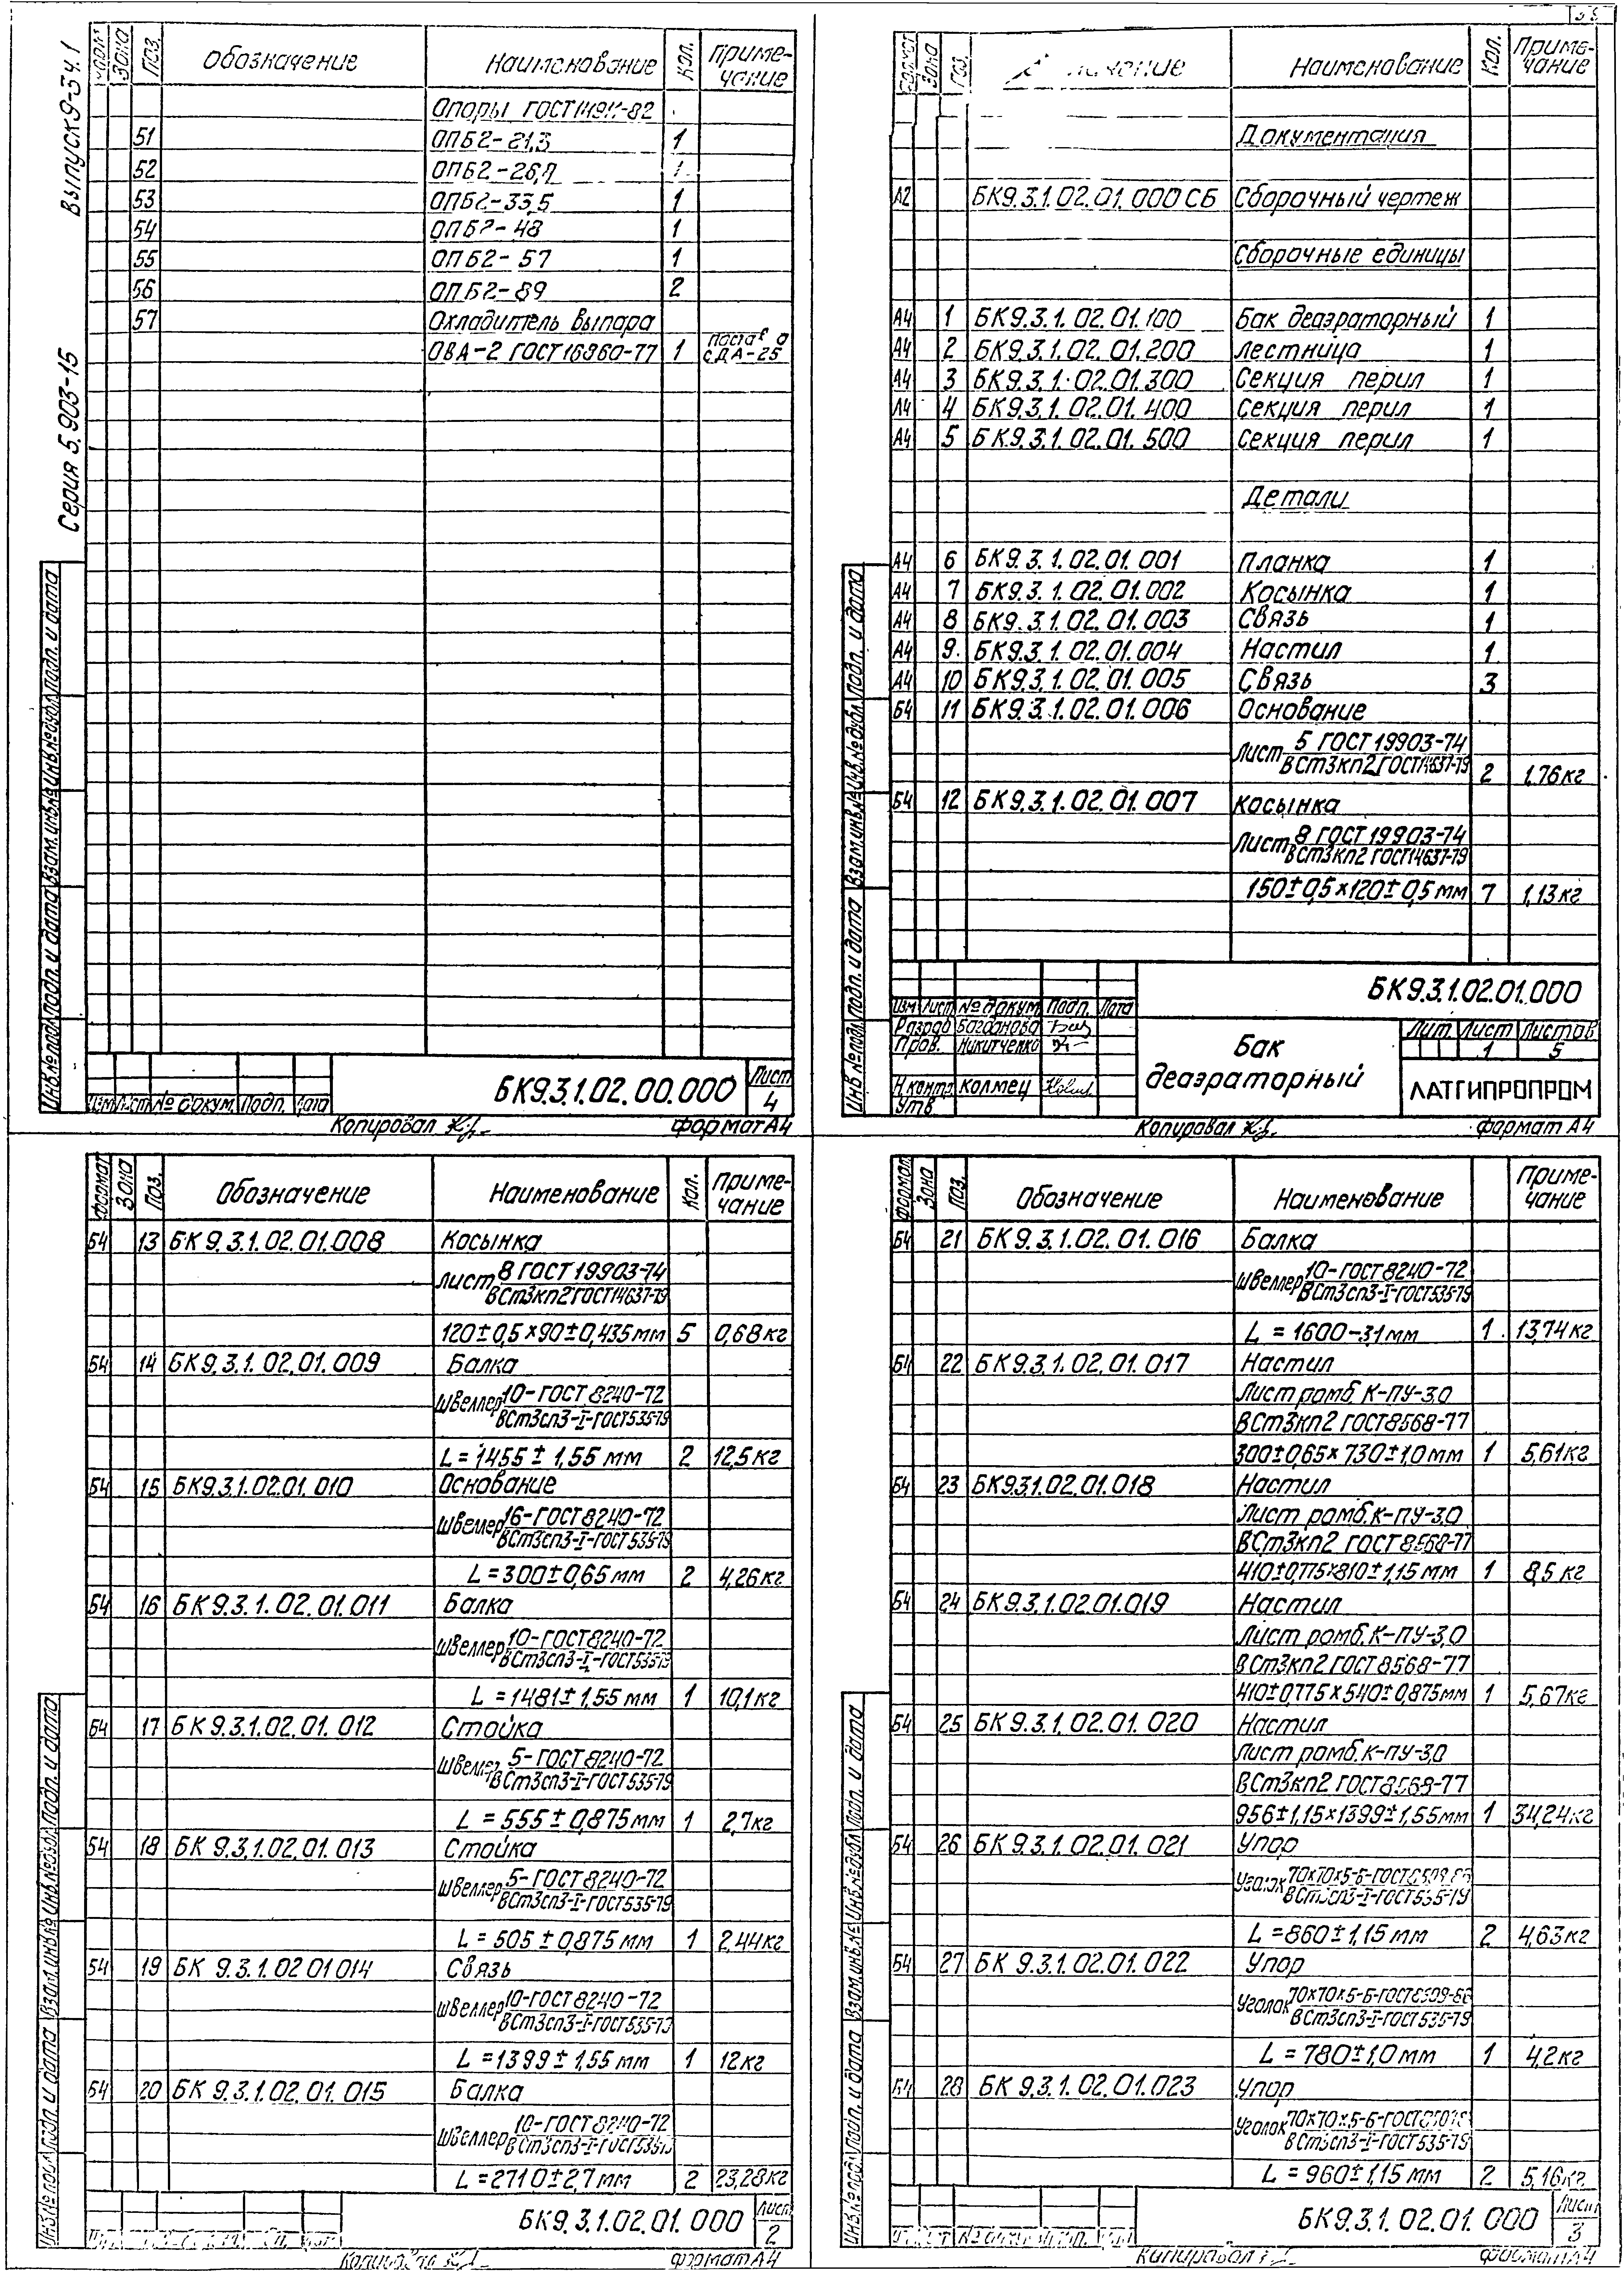 Серия 5.903-15 Выпуск 9-3 ч.1
Зона Поз. Обозначение Наименование Кол. Приме-
чание
Опоры ГОСТ
51 ОПБ2-21,3 1
52 ОПБ2-26,7
53 ОПБ2-33,5 1
54 ОПБ2-48 1
55 ОПБ2-57 1
56 ОПБ2-89 2
57 Охладитель выпара
ОВА-2 ГОСТ 16960-77 1 с ДА-25
Инв.№подл. Подп. и дата Взам.инв.№ Инв.№дубл. Подп. и дата
БК9.3.1.02.00.000 Лист
4
Изм Лист № докум. Подп. Дата
Копировал Формат А4
Зона Поз. Наименование Кол. Приме-
чание
Документация
А2 БК9.3.1.02.01.000СБ Сборочный чертеж
Сборочные единицы
А4 1 БК9.3.1.02.01.100 Бак деаэраторный 1
А4 2 БК9.3.1.02.01.200 Лестница 1
А4 3 БК9.3.1.02.01.300 Секция перил 1
А4 4 БК9.3.1.02.01.400 Секция перил 1
А4 5 БК9.3.1.02.01.500 Секция перил 1
Детали
А4 6 БК9.3.1.02.01.001 Планка 1
А4 7 БК9.3.1.02.01.002 Косынка 1
А4 8 БК9.3.1.02.01.003 Связь 1
А4 9 БК9.3.1.02.01.004 Настил 1
А4 10 БК9.3.1.02.01.005 Связь 3
Б4 11 БК9.3.1.02.01.006 Основание
Лист 5 ГОСТ 19903-74
ВСт3кп2 ГОСТ14637-79 2 1,76кг
Б4 12 БК9.3.1.02.01.007 Косынка
Лист 8 ГОСТ 19903-74
ВСт3кп2 ГОСТ14637-79
150±0,5×120±0,5мм 7 1,13кг
Инв.№подл. Подп. и дата Взам.инв.№ Инв.№дубл. Подп. и дата
БК9.3.1.02.01.000
Изм Лист № докум. Подп. Дата
Разраб Богданова
Пров. Никитченко
Н.контр. Колмец
Утв
Бак
деаэраторный
Лит. Лист Листов
1 5
ЛАТГИПРОПРОМ
Копировал Формат А4
Формат Зона Поз. Обозначение Наименование Кол. Приме-
чание
Б4 13 БК9.3.1.02.01.008 Косынка
Лист 8 ГОСТ 19903-74
ВСт3кп2ГОСТ14637-79
120±0,5×90±0,435мм 5 0,68кг
Б4 14 БК9.3.1.02.01.009 Балка
Швеллер 10-ГОСТ 8240-72
ВСт3сп3-I-ГОСТ535-79
L=1455±1,55 мм 2 12,5кг
Б4 15 БК9.3.1.02.01.010 Основание
Швеллер 16-ГОСТ8240-72
ВСт3сп3-I-ГОСТ535-79
L=300±0,65мм 2 4,26кг
Б4 16 БК9.3.1.02.01.011 Балка
Швеллер 10-ГОСТ8240-72
ВСт3сп3-I-ГОСТ535-79
L=1481±1,55мм 1 10,1кг
Б4 17 БК9.3.1.02.01.012 Стойка
Швеллер 5-ГОСТ8240-72
ВСт3сп3-I-ГОСТ535-79
L=555±0,875мм 1 2,7кг
Б4 18 БК 9.3.1.02.01.013 Стойка
Швеллер 5-ГОСТ8240-72
ВСт3сп3-I-ГОСТ535-79
L=505±0,875мм 1 2,44кг
Б4 19 БК 9.3.1.02 01 014 Связь
Швеллер 10-ГОСТ8240-72
ВСт3сп3-I-ГОСТ535-79
L=1399±1,55 мм 1 12кг
Б4 20 БК 9.3.1.02.01.015 Балка
Швеллер 10-ГОСТ8240-72
ВСт3сп3-I-ГОСТ535-79
L=2710±2,7мм 2 23,28кг
Инв.№подл. Подп. и дата Взам.инв.№ Инв.№дубл. Подп. и дата
БК9.3.1.02.01.000 Лист
2
Формат А4
Формат Зона Поз. Обозначение Наименование Приме-
чание
Б4 21 БК9.3.1.02.01.016 Балка
Швеллер 10-ГОСТ8240-72
ВСт3сп3-I-ГОСТ535-79
L=1600-3,1мм 1 13,74кг
Б4 22 БК9.3.1.02.01.017 Настил
Лист ромб. К-ПУ-3,0
ВСт3кп2 ГОСТ8568-77
300±0,65×730±1,0мм 1 5,61кг
Б4 23 БК9.3.1.02.01.018 Настил
Лист ромб. К-ПУ-3,0
ВСт3кп2 ГОСТ8568-77
410±0,775×810±1,15мм 1 8,5 кг
Б4 24 БК9.3.1.02.01.019 Настил
Лист ромб. К-ПУ-3,0
ВСт3кп2 ГОСТ8568-77
410±0,775×540±0,875мм 1 5,67кг
Б4 25 БК9.3.1.02.01.020 Настил
Лист ромб. К-ПУ-3,0
ВСт3кп2 ГОСТ8568-77
956±1,15×1399±1,55мм 1 34,24кг
Б4 26 БК9.3.1.02.01.021 Упор
Уголок 70×70×5-Б-ГОСТ8509-86
ВСт3сп3-I-ГОСТ535-79
L=860±1,15мм 2 4,63кг
Б4 27 БК 9.3.1.02.01.022 Упор
Уголок 70×70×5-Б-ГОСТ8509-86
ВСт3сп3-I-ГОСТ535-79
L=780±1,0мм 1 4,2кг
Б4 28 БК 9.3.1.02.01.023 Упор
Уголок 70×70×5-Б-ГОСТ
ВСт3сп3-I-ГОСТ535-79
L=960±1,15мм 2 5,16кг
Инв.№подл. Подп. и дата Взам.инв.№ Инв.№дубл. Подп. и дата
БК9.3.1.02.01.000 Лист
3
Копировал Формат А4